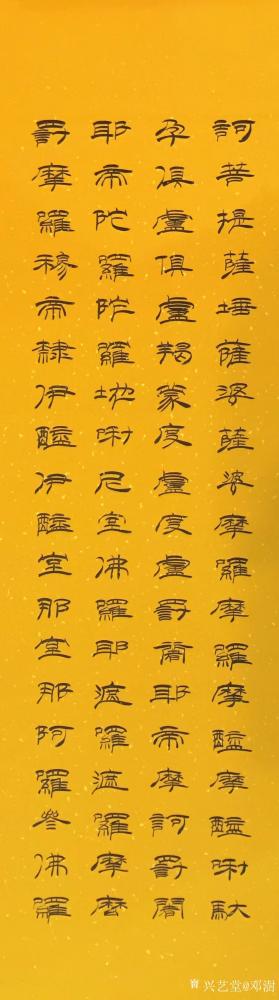 訶菩提薩埵薩婆薩婆摩羅摩羅摩醯摩醯唎馱
孕俱盧俱盧羯蒙度盧度盧罰闍耶帝摩訶罰闍
耶帝陀羅陀羅地唎尼室佛羅耶遮羅遮羅摩麼
罰摩羅穆帝隸伊醯伊醯室那室那阿羅參佛羅
兴艺堂@邓澍